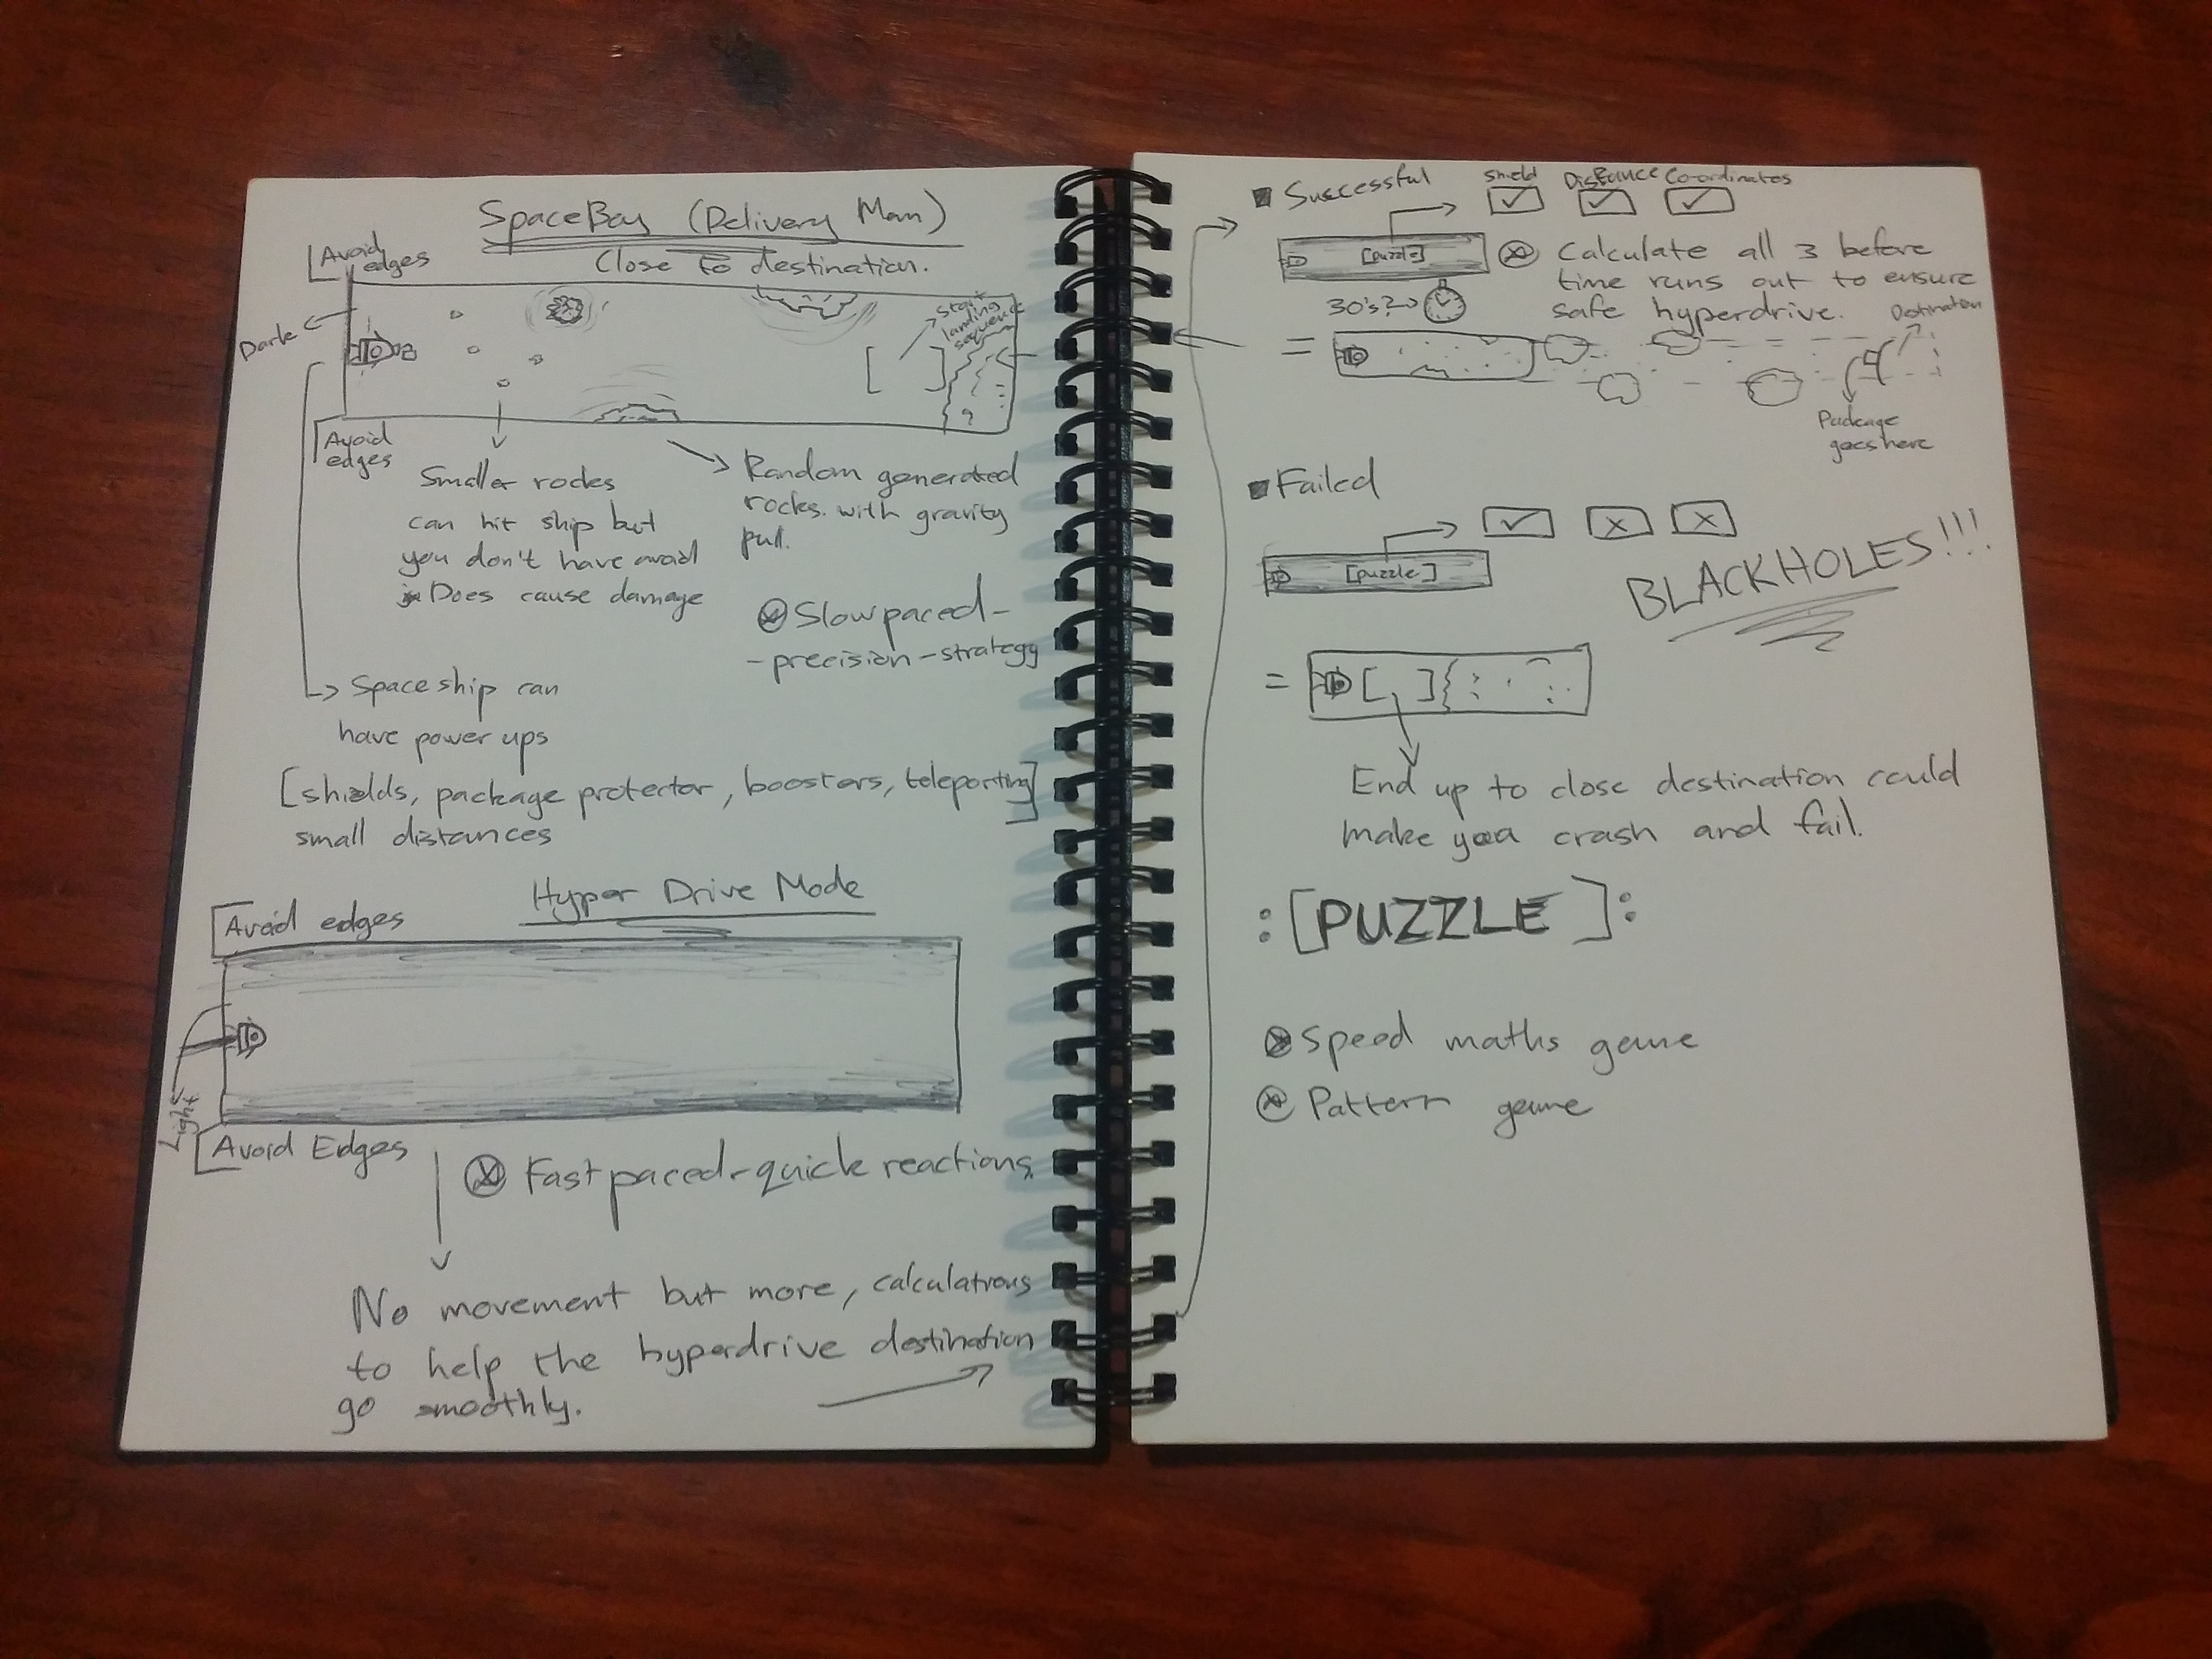 SpaceBoy (Delivery Man)
Close to destination.
Avoid
edges
Dark
Start
landing
sequence
?
Avoid
edges
Smaller rocks
can hit ship but
you don't have avoid
Does cause damage
Random generated
rocks. with gravity
pull.
Slow paced-
-precision-strategy
Space ship can
have power ups
[shields, package protector, boosters, teleporting]
small distances
Hyper Drive Mode
Avoid edges
Light
Avoid Edges
Fast paced-quick reactions
No movement but more, calculations
to help the hyperdrive destination
go smoothly.
Successful
Shield Distance Co-ordinates
[puzzle]
Calculate all 3 before
time runs out to ensure
safe hyperdrive.
30's?
Destination
=
Package
goes here
Failed
[puzzle]
BLACKHOLES!!!
= [ ]
End up to close destination could
make you crash and fail.
:[PUZZLE]:
Speed maths game
Pattern game